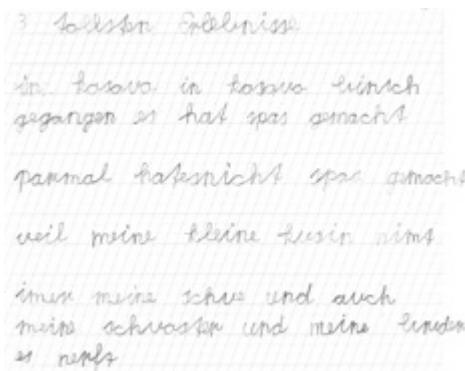 3 tollsten Erlebnisse
in kosovo in kosovo bin ich
gegangen es hat spas gemacht
parmal hatesnicht spas gemacht
weil meine kleine kusin nimt
imer meine schue und auch
meine schwaster und meine bruder
es nerft